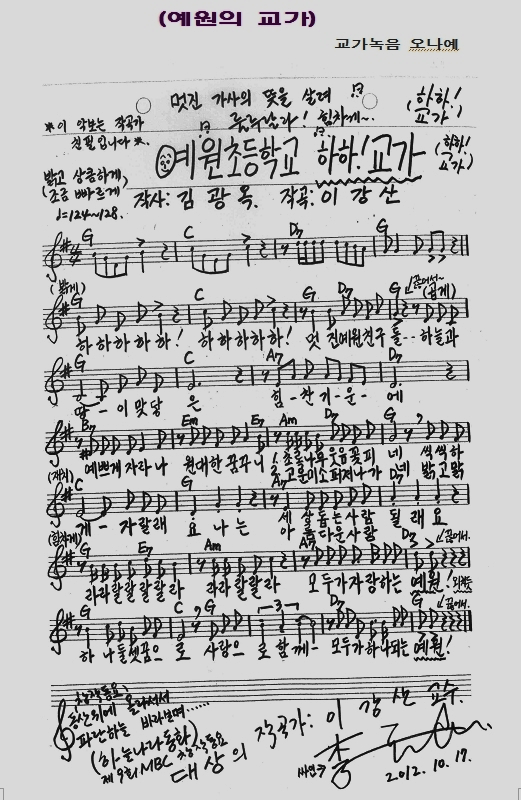 (예원의 교가)
교가녹음 오나예
멋진 가사의 뜻을 살려
룰루랄라! 힘차게~
(하하! 교가)
*이 악보는 작곡가
친필입니다*
예원초등학교 하하!교가
(하하! 교가)
밝고 상큼하게,
(조금 빠르게)
♩=124~128.
작사: 김 광 옥. 작곡: 이 강 산
G C D7 G
(밝게)
G C G D7 G 끊어서~ (쉽게)
하하하하하! 하하하하하! 멋진예원친구들-- 하늘과
C A7 D7
땅-이맞닿은 힘-찬기-운-에
B7 Em E7 Am D7 G
예쁘게자라나 원대한꿈꾸니 1. 초롱나무웃음꽃피네 씩씩하
2. 고운미소퍼져나가네 밝고맑
C G A7 D7
게-자랄래요나는 세살돕는사람될래요
아름다운사람
(힘차게)
G E7 Am A7 D7 끊어서.
라라랄랄랄랄라 라라랄랄라 모두가자랑하는예원!
G C G D7 G 끊어서.
하나둘셋꿈으로 사랑으로함께- 모두가하나되는예원!
창작동요
동산위에 올라서서
파란하늘 바라보며......
(하늘나라동화)
제9회MBC 창작동요
대상의 작곡가: 이 강 산 교수.
싸인♡
2012. 10. 17.